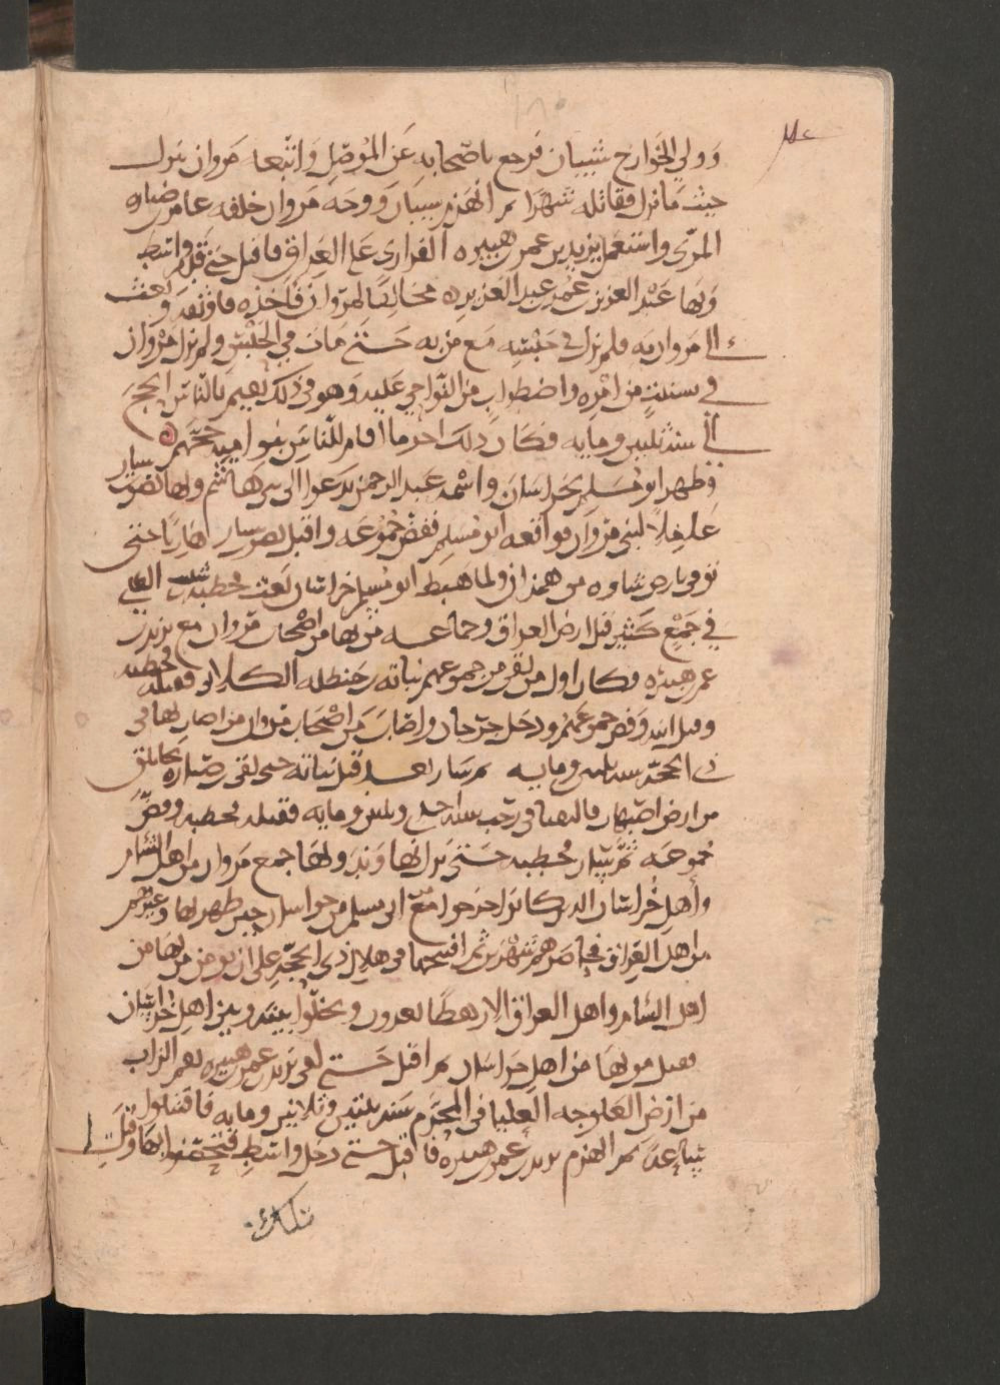 وولي الخوارج شيبان فرجع باصحابه عن الموصل واتبعه مروان ينزل
حيث ما نزل فقاتله شهرا ثم انهزم شيبان ووجه مروان خلفه عامر ضباره
المرى واستعمل يزيد بن عمر هبيره الفزارى على العراق فاقبل حتى قدم واسط
وبها عبد العزيز بن عمر عبد العزيز مخالفا لمروان فاخذه فاوثقه وبعث
الى مروان به فلم يزل في حبسه مع من به حتى مات في الحبس ولم يزل مروان
في من امره واضطراب من النواحي عليه وهو في ذلك يقيم بالناس الحج
الى سنة ثلثين ومايه فكان ذلك اخر ما اقام للناس بنو اميه حجهم
وظهر ابو مسلم بخراسان واسمه عبد الرحمن يدعوا الى بني هاشم وبها نصر سيار
عاملا لبني مروان فواقعه ابو مسلم ففض جموعه واقبل نصر سيار هاربا حتى
توفي بارض ساوه من همذان ولما هبط ابو مسلم خراسان بعث قحطبه
في جمع كثير قبل ارض العراق وجماعه من بها من اصحاب مروان مع يزيد
عمر هبيره فكان اول من لقى من جموعهم نباته حنظله الكلابى فقتله قحطبه
وفض جموعهم ودخل جرجان واصاب من اصحاب مروان من اصاب بها في
ذي الحجه سنة ثلثين ومايه ثم سار بعد قتل نباته حتى لقى ضباره بجابلق
من ارض اصبهان فالتقيا في رجب سنة احدى وثلثين ومايه فقتله قحطبه وفض
جموعه ثم سار قحطبه حتى نزل نهاوند وبها جمع مروان من اهل الشام
واهل خراسان الذين كانوا خرجوا مع ابى مسلم من خراسان حين ظهر بها وغيرهم
من اهل العراق فحاصرهم شهرين ثم افتتحها في هلال ذي الحجه على ان يومن من بها من
اهل الشام واهل العراق الا رهطا يعدون ويخلوا بينه وبين اهل خراسان
فقتل من بها من اهل خراسان ثم اقبل حتى لقى يزيد عمر هبيره بفم الزاب
من ارض الفلوجه العليا في المحرم سنة ثنتين وثلاثين ومايه فاقتتلوا
ثم انهزم يزيد عمر هبيره فاقبل حتى دخل واسط فتحصن بها وقتل